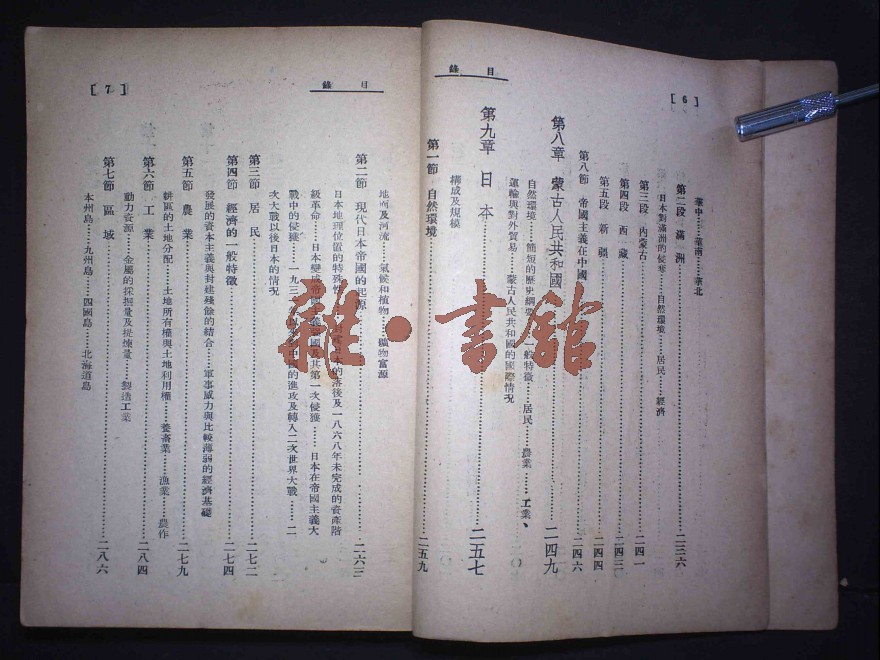 目錄
[ 6 ]
華中……華南……華北
第二段 滿洲……二三六
日本對滿洲的侵……自然環境……居民……經濟
第三段 內蒙古……二四一
第四段 西藏……二四三
第五段 新疆……二四四
第八節 帝國主義在中國……二四六
第八章 蒙古人民共和國……二四九
自然環境……簡短的歷史綱要……一般特徵……居民……農業……工業、
運輸與對外貿易……蒙古人民共和國的國際情況
第九章 日本……二五七
構成及規模
第一節 自然環境……二五九
目錄
[ 7 ]
地面及河流……氣候和植物……礦物富源
第二節 現代日本帝國的起源……二六三
日本地理位置的特殊性……日本的落後及一八六八年未完成的資產階
級革命……日本變成帝國主義國及其第一次侵獵……日本在帝國主義大
戰中的侵獵……一九三以來中國的進攻及轉入二次世界大戰……二
次大戰以後日本的情況
第三節 居民……二七二
第四節 經濟的一般特徵……二七四
發展的資本主義與封建殘餘的結合……軍事威力與比較薄弱的經濟基礎
第五節 農業……二七九
耕區的土地分配……土地所有權與土地利用權……養畜業……漁業……農作
第六節 工業……二八四
動力資源……金屬的採掘量及提煉量……製造工業
第七節 區域……二八六
本州島……九州島……四國島……北海道島
雜·書館